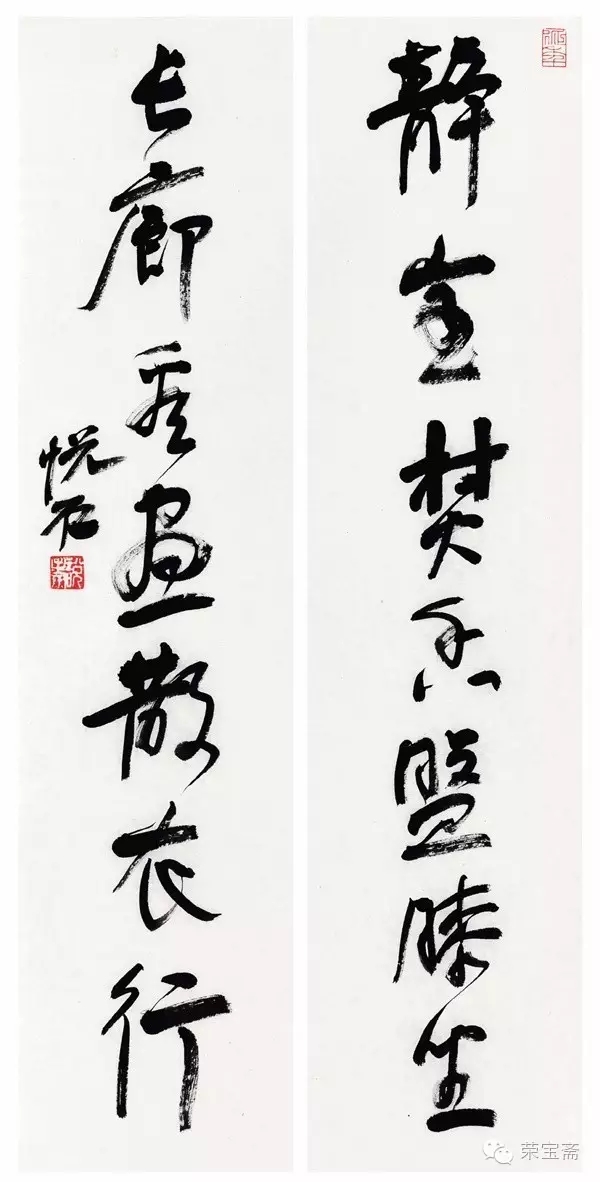 静室焚香盤膝坐
长廊看畫散衣行
悦石
荣宝斋